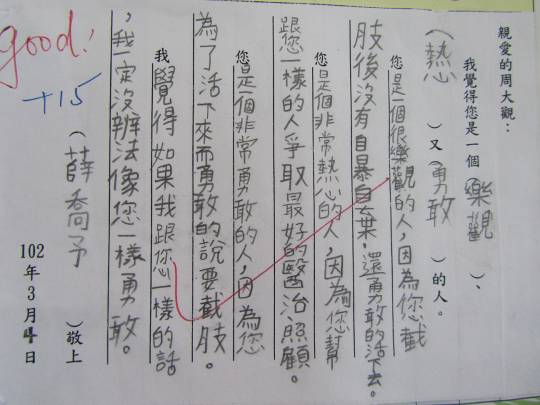 親愛的周大觀：
我覺得您是一個(樂觀)、
(熱心)又(勇敢)的人。
您是一個很樂觀的人，因為您截
肢後沒有自暴自棄，還勇敢的活下去。
您是個非常熱心的人，因為您幫
跟您一樣的人爭取最好的醫治、照顧。
您是一個非常勇敢的人，因為您
為了活下來而勇敢的說要截肢。
我覺得如果我跟您一樣的話
，我一定沒辦法像您一樣勇敢。
(薛喬予)敬上
102年3月4日
good!
+15